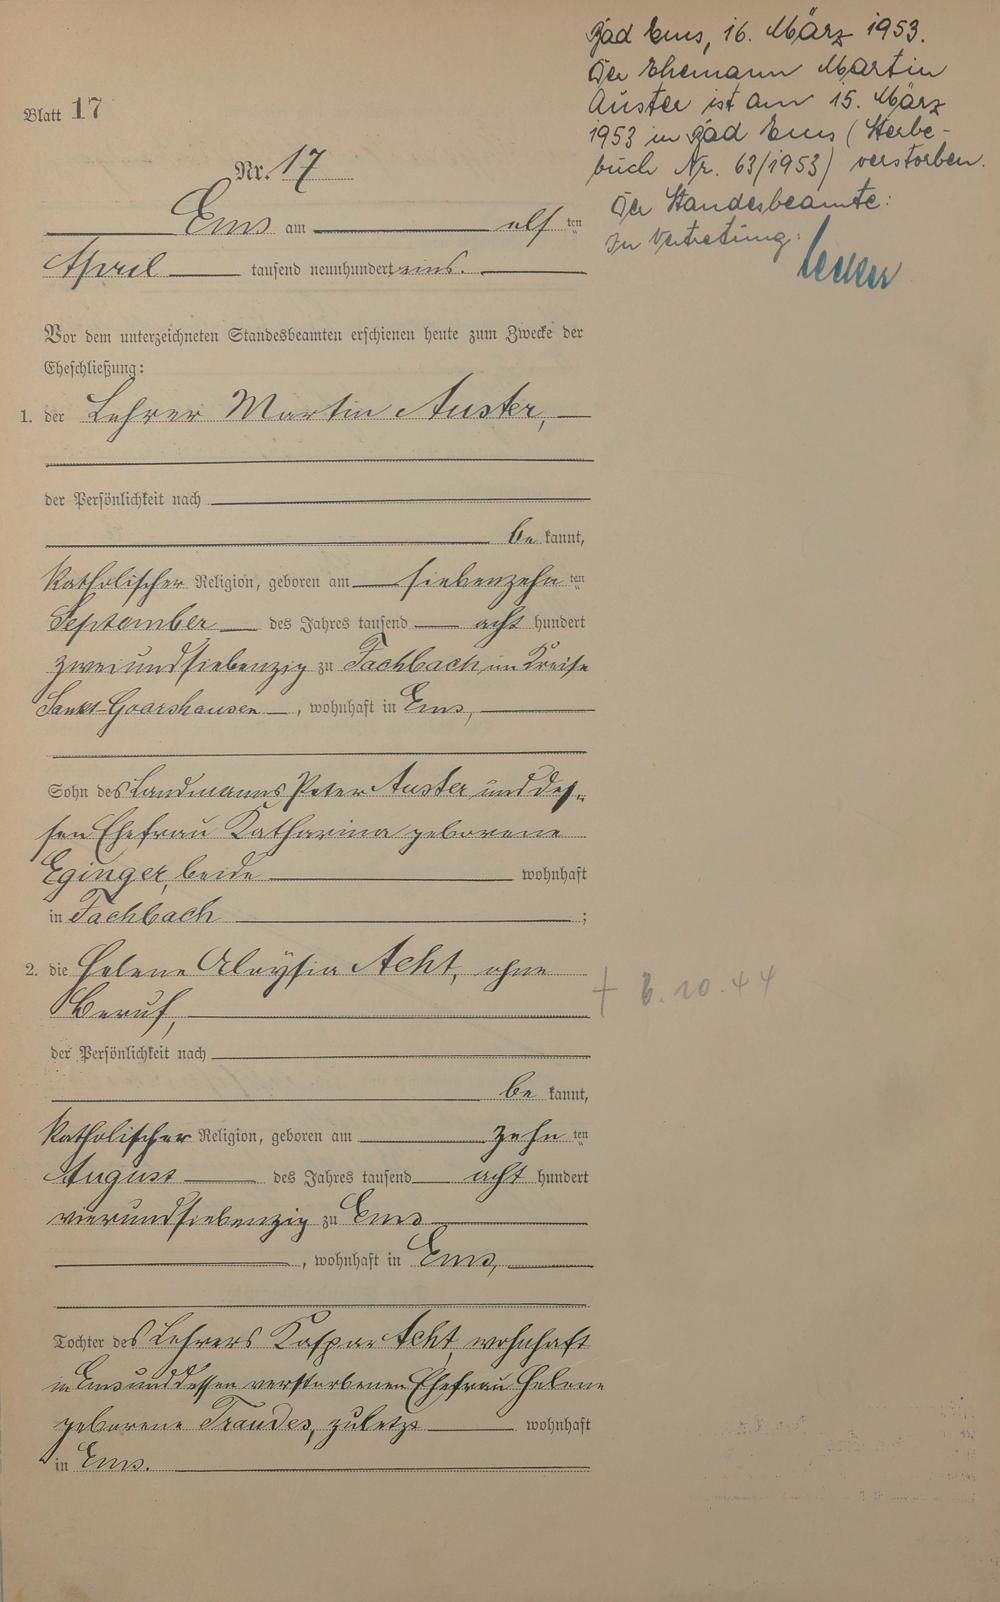 Bad Ems, 16. März 1953.
Der Ehemann Martin
Auster ist am 15. März
1953 in Bad Ems (Sterbe-
buch Nr. 63/1953) verstorben.
Der Standesbeamte:
In Vertretung:
Blatt 17
Nr. 17
Ems am elf ten
April tausend neunhundert eins.
Vor dem unterzeichneten Standesbeamten erschienen heute zum Zwecke der
Eheschließung:
1. der Lehrer Martin Auster,
der Persönlichkeit nach
be kannt,
katholischer Religion, geboren am siebenzehn ten
September des Jahres tausend acht hundert
zweiundsiebenzig zu Fachbach im Kreise
Sankt-Goarshausen, wohnhaft in Ems,
Sohn des Landmanns Peter Auster und des-
sen Ehefrau Katharina geborene
Eginger, beide wohnhaft
in Fachbach ;
2. die Helene Aloysia Acht, ohne
Beruf,
† 6.10.44
der Persönlichkeit nach
be kannt,
katholischer Religion, geboren am zehn ten
August des Jahres tausend acht hundert
vierundsiebenzig zu Ems
, wohnhaft in Ems,
Tochter des Lehrers Kaspar Acht, wohnhaft
in Ems und dessen verstorbenen Ehefrau Helene
geborene Traudes, zuletzt wohnhaft
in Ems.